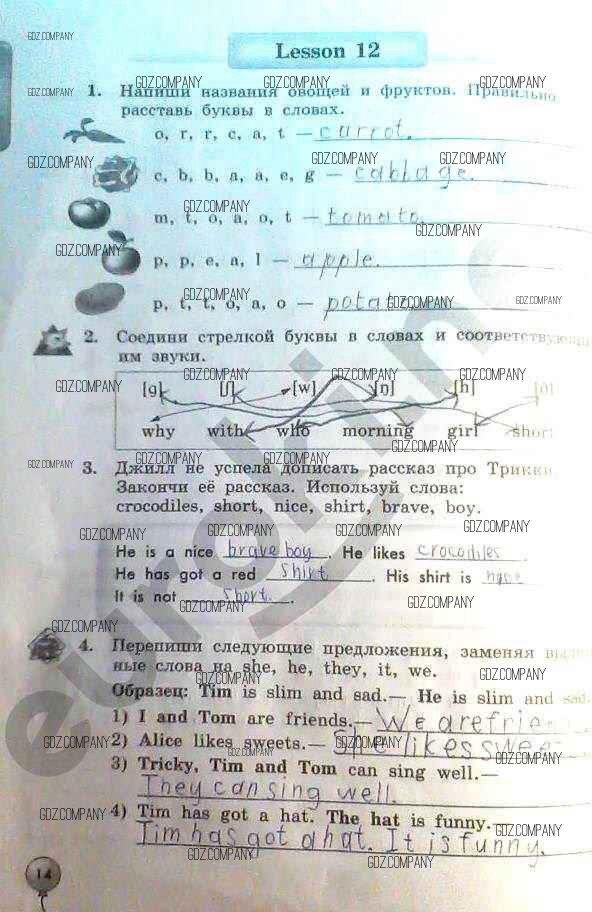 Lesson 12
1. Напиши названия овощей и фруктов. Правильно
расставь буквы в словах.
o, r, r, c, a, t — carrot.
c, b, b, a, a, e, g — cabbage.
m, t, o, a, o, t — tomato.
p, p, e, a, l — apple.
p, t, t, o, a, o — potato.
2. Соедини стрелкой буквы в словах и соответствующи
им звуки.
[g] [ʃ] [w] [ŋ] [h] [ð]
why with who morning girl short
3. Джилл не успела дописать рассказ про Трикки.
Закончи её рассказ. Используй слова:
crocodiles, short, nice, shirt, brave, boy.
He is a nice brave boy. He likes crocodiles.
He has got a red shirt. His shirt is
It is not short.
4. Перепиши следующие предложения, заменяя
ные слова на she, he, they, it, we.
Образец: Tim is slim and sad.— He is slim and sad.
1) I and Tom are friends.— We are frien
2) Alice likes sweets.— She likes swee
3) Tricky, Tim and Tom can sing well.—
They can sing well.
4) Tim has got a hat. The hat is funny.—
Tim has got a hat. It is funny.
14
GDZ.COMPANY
euroki.no